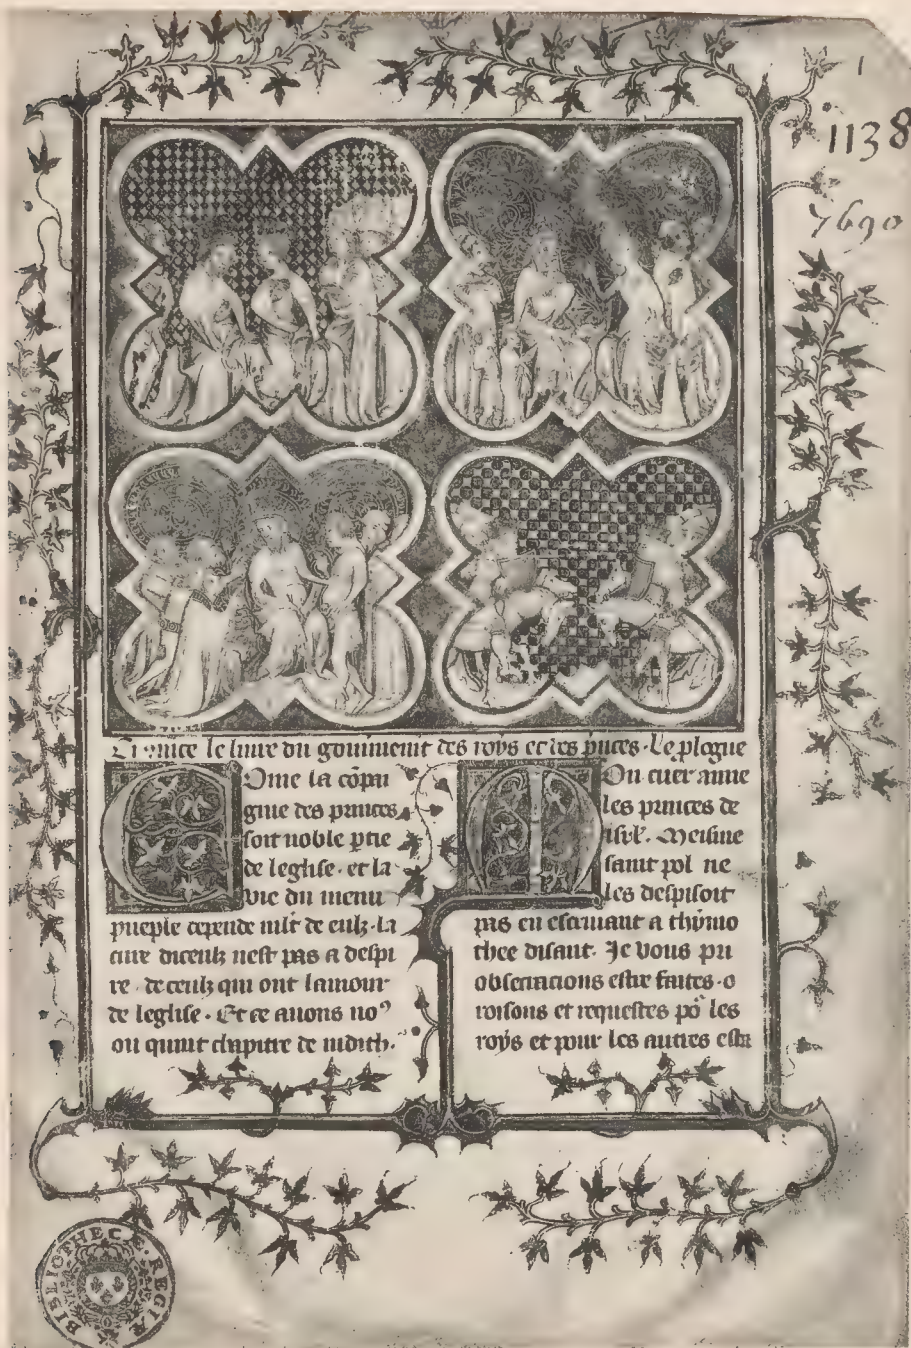 1
1138
7690
le liure du gouuernemt des roys et des princes. Le plogue
Come la cōpai
gnie des princes
soit noble ptie
de leglise. et la
vie du menu
pueple depende mlt de eulz. la
cure diceulz nest pas a despi
re. de ceulz qui ont lamour
de leglise. Et ce auons no⁹
ou quint chapitre de iudith.
Mon cuer aime
les princes de
isrl. Meisme
saint pol ne
les despisoit
pas en escriuant a thymo
thee disant. Je vous pri
obsecracions estre faites. o
roisons et requestes po les
roys et pour les autres esta
BIBLIOTHECÆ REGIÆ